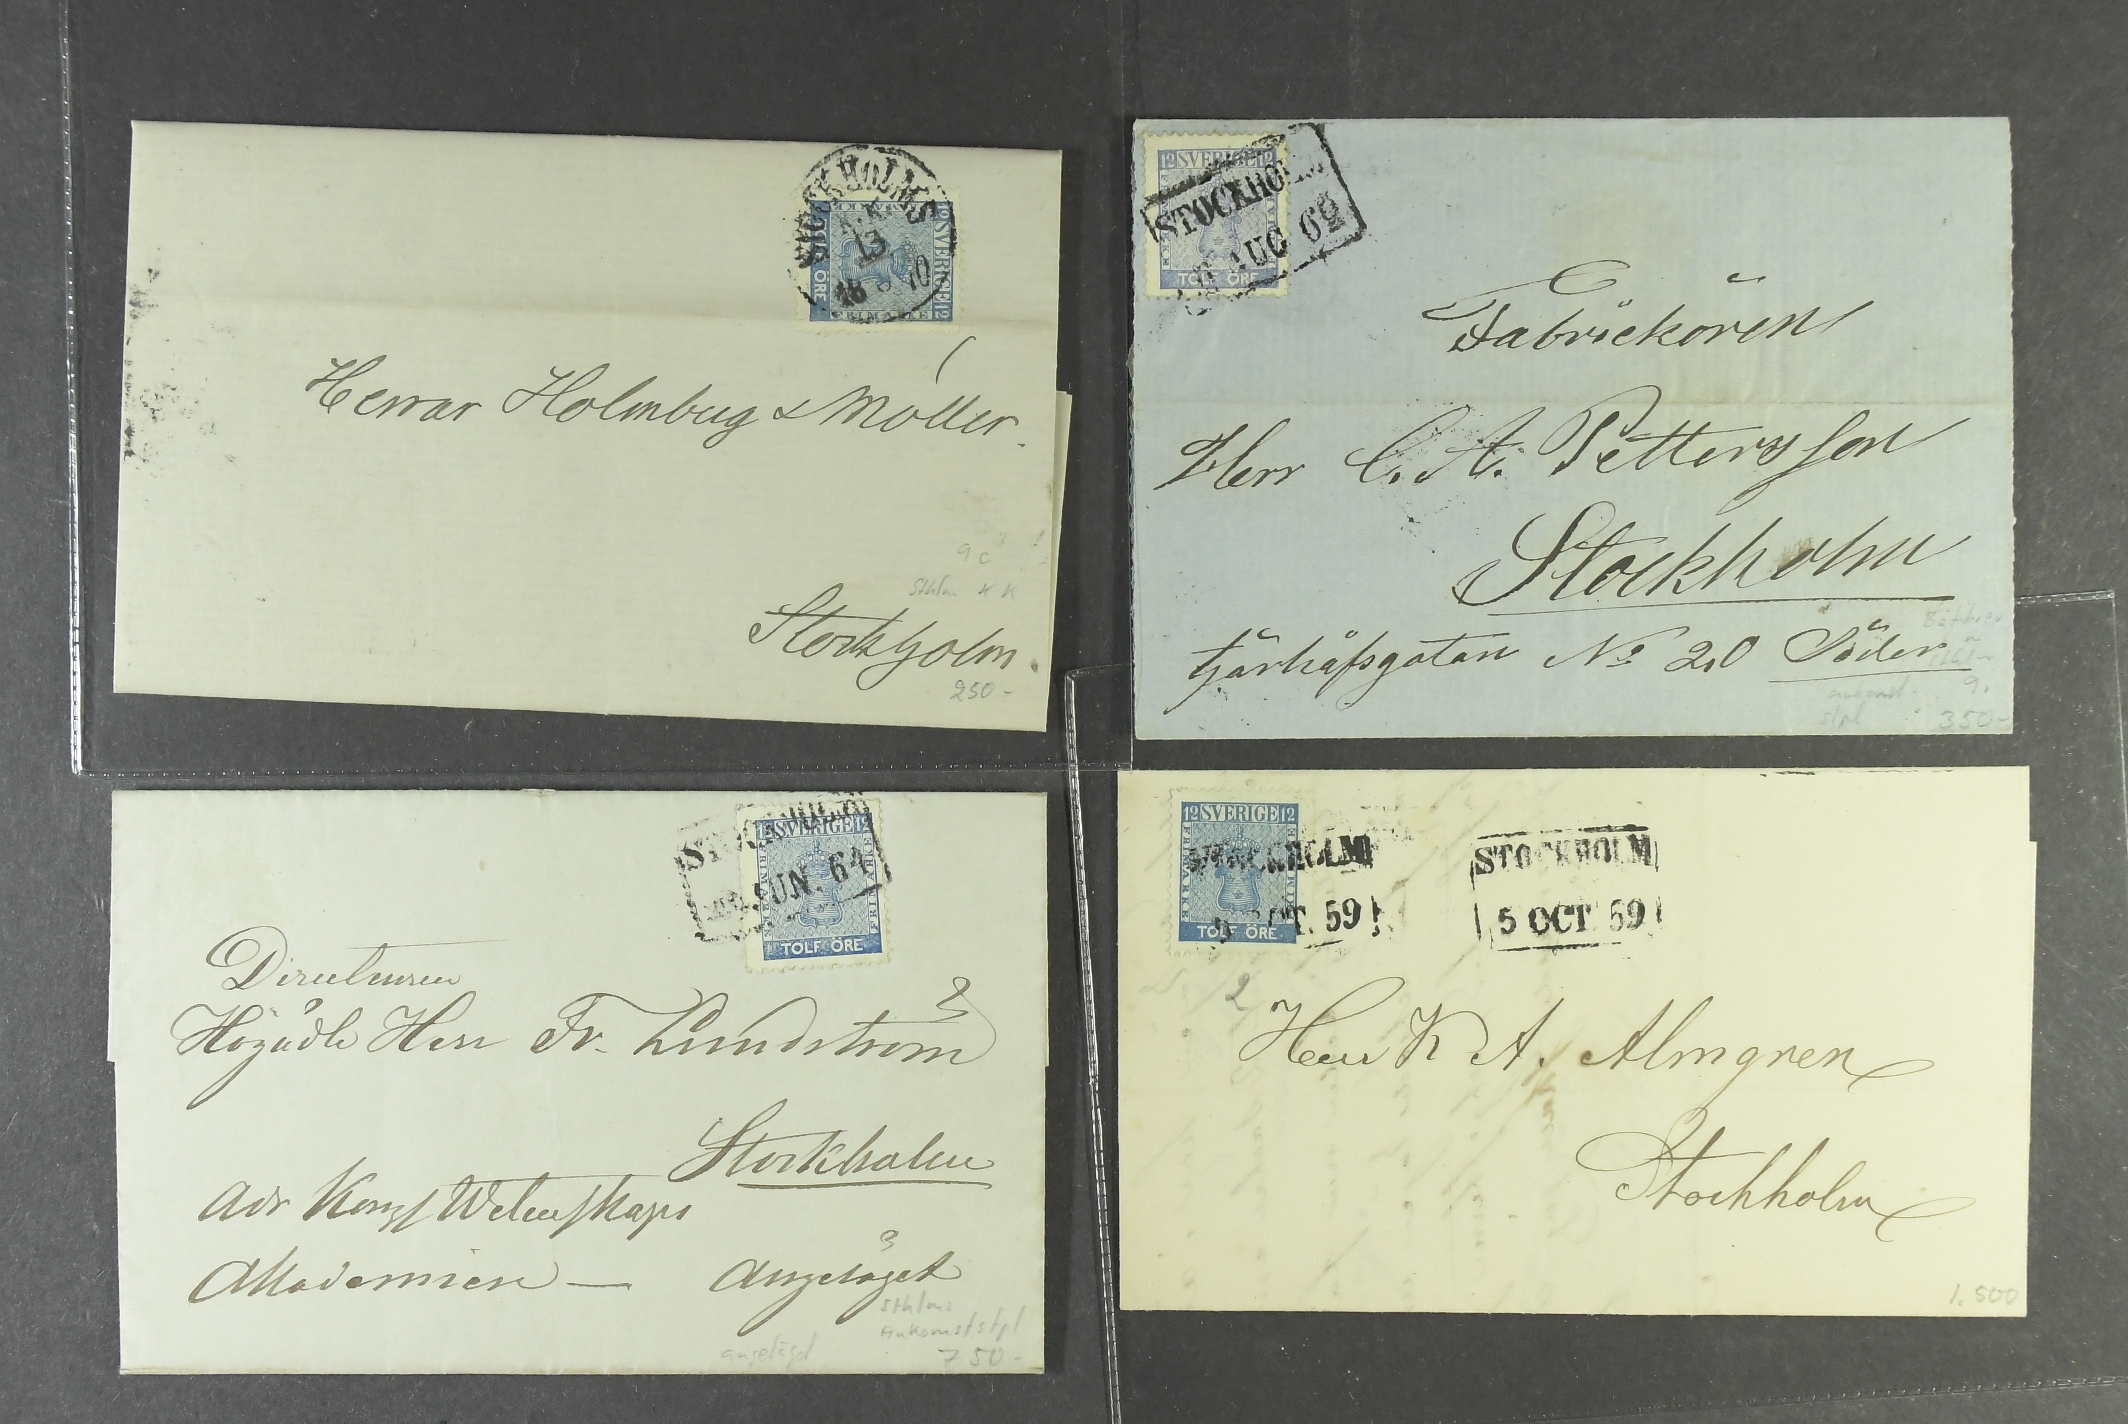 STOCKHOLMS
13
18 70
12 SVERIGE 12
FRIMÄRKE
ÖRE
Herrar Holmberg & Möller.
9 c
Sthlm K K
Stockholm.
250-
12 SVERIGE 12
STOCKHOLM
AUG 62
TOLF ÖRE
Fabrickören
Herr C. A. Pettersson
Stockholm
tjärhåfsgatan No 20 Söder
ankomst
stpl
9.
350-
STOCKHOLM
12 SVERIGE 12
JUN. 64
FRIMÄRKE
FRIMÄRKE
TOLF ÖRE
Directeuren
Högädle Herr Fr. Lundström
Stockholm
adr Kongl Wetenskaps
Akademien — Angeläget
Sthlms
Ankomststpl
angeläget
750-
12 SVERIGE 12
FRIMÄRKE
FRIMÄRKE
STOCKHOLM
OCT. 59
TOLF ÖRE
STOCKHOLM
5 OCT 59
2
Herr K A. Almgren
Stockholm
1.500